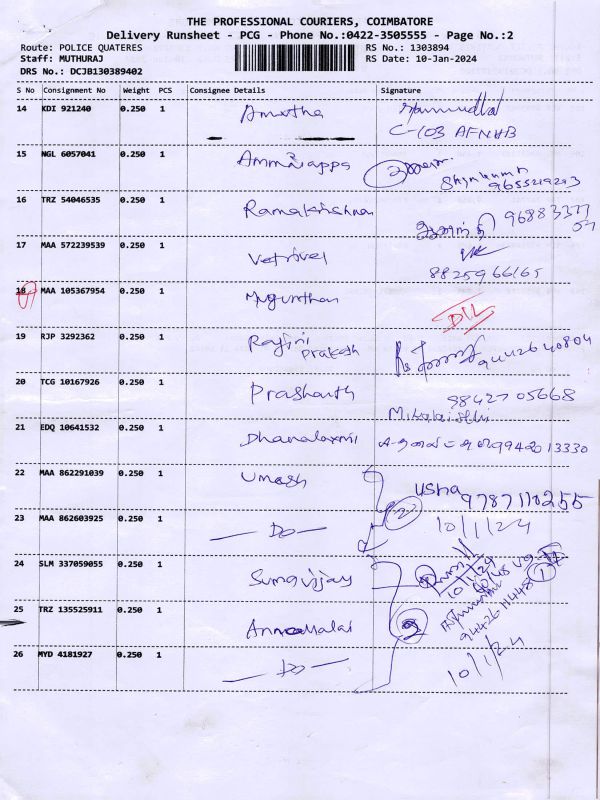 THE PROFESSIONAL COURIERS, COIMBATORE
Delivery Runsheet - PCG - Phone No.:0422-3505555 - Page No.:2
Route: POLICE QUATERES RS No.: 1303894
Staff: MUTHURAJ RS Date: 10-Jan-2024
DRS No.: DCJB130389402
S No Consignment No Weight PCS Consignee Details Signature
14 KDI 921240 0.250 1 Amutha
C-103 AFNHB
15 NGL 6057041 0.250 1 Ammaiappa 3
9655219293
16 TRZ 54046535 0.250 1 Ramakrishnan
17 MAA 572239539 0.250 1 Vetrivel
8825966165
18 MAA 105367954 0.250 1 Mugunthan DIL
19 RJP 3292362 0.250 1 Rajini
Prakash 9442640804
20 TCG 10167926 0.250 1 Prashanth 9842705668
21 EDQ 10641532 0.250 1 Dhanalaxmi 9942013330
22 MAA 862291039 0.250 1 Umash usha 9787110255
23 MAA 862603925 0.250 1 — Do — 2 10/1/24
24 SLM 337059055 0.250 1 Sumavijay 10/1/24
25 TRZ 135525911 0.250 1 Annamalai 2
26 MYD 4181927 0.250 1 — Do — 10/1/24